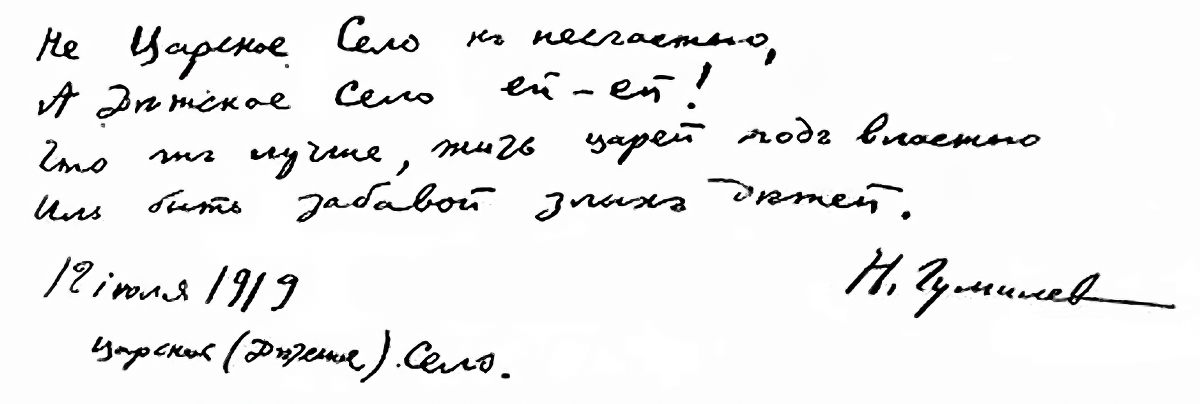 Не Царское Село къ несчастью,
А Дѣтское Село ей-ей!
Что жъ лучше, жить царей подъ властью
Иль быть забавой злыхъ дѣтей.
12 іюля 1919
Н. Гумилев
Царское (Дѣтское) Село.